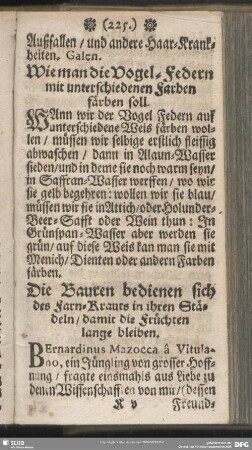 (225.)
Außfallen / und andere Haar-Krank-
heiten. Galen.
Wie man die Vogel-Federn
mit unterschiedenen Farben
färben soll.
WAnn wir der Vogel Federn auf
unterschiedene Weis färben wol-
len / müssen wir selbige erstlich fleissig
abwaschen / dann in Alaun-Wasser
sieden / und in deme sie noch warm seyn /
in Saffran-Wasser werffen / wo wir
sie gelb begehren: wollen wir sie blau /
müssen wir sie in Attich / oder Holunder-
Beer-Safft oder Wein thun: In
Grünspan-Wasser aber werden sie
grün / auf diese Weis kan man sie mit
Menich / Dienten oder andern Farben
färben.
Die Bauren bedienen sich
des Farn-Krauts in ihren Stä-
deln / damit die Früchten
lange bleiben.
BErnardinus Mazocca â Vitula-
no, ein Jüngling von grosser Hoff-
nung / fragte einsmahls aus Liebe zu
denen Wissenschafften von mir / (dessen
Freund-
SLUB